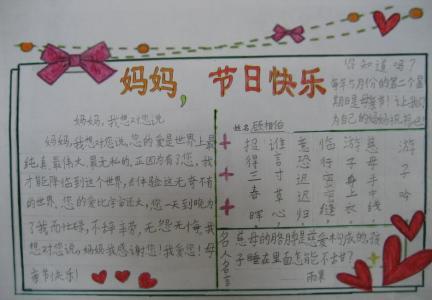 妈妈,节日快乐
你知道吗?
每年5月份的第二个星
期日是母亲节!让我们
为自己的妈妈祝福吧!
妈妈,我想对您说
妈妈,我想对您说,您的爱是世界上最
纯真、最伟大、最无私的,正因为有了您,我
才能降临到这个世界,去体验这无奇不有
的世界。您的爱比宇宙还大,您一天到晚为
了我而忙碌,不辞辛劳,无怨无悔,我
想对您说:妈妈我感谢您!我爱您!母
亲节快乐!
姓名
游子吟
慈母手中线
游子身上衣
临行密密缝
意恐迟迟归
谁言寸草心
报得三春晖
名人名言
慈母的胳膊是慈爱构成的,孩
子睡在里面怎能不甜?
雨果